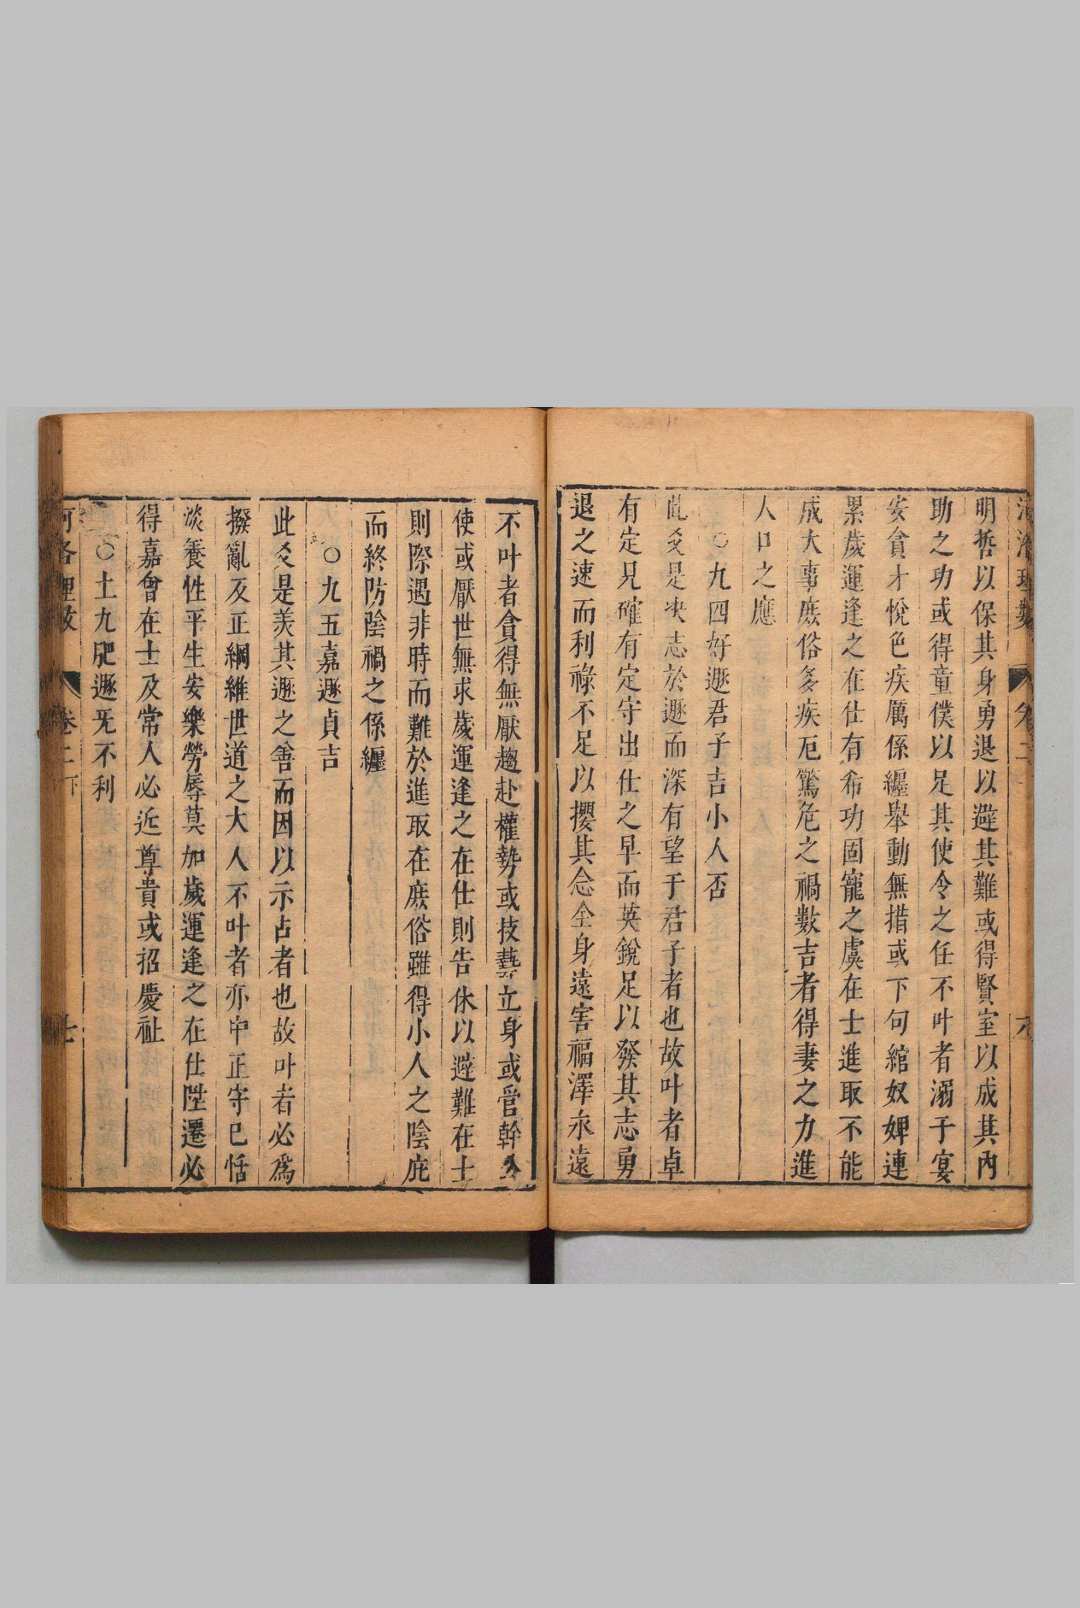 明哲以保其身勇退以避其難或得賢室以成其內
助之功或得童僕以足其使令之任不叶者溺于宴
安貪才悅色疾厲係纏舉動無措或下句綰奴婢連
累歲運逢之在仕有布功固寵之虞在士進取不能
成大事庶俗多疾厄驚危之禍數吉者得妻之力進
人口之應
○九四好遯君子吉小人否
此爻是決志於遯而深有望于君子者也故叶者卓
有定見確有定守出仕之早而英銳足以發其志勇
退之速而利祿不足以攖其念全身遠害福澤永遠
不叶者貪得無厭趨赴權勢或技藝立身或管幹公
使或厭世無求歲運逢之在仕則告休以避難在士
則際遇非時而難於進取在庶俗雖得小人之陰庇
而終防陰禍之係纏
○九五嘉遯貞吉
此爻是美其遯之善而因以示占者也故叶者必爲
撥亂反正綱維世道之大人不叶者亦中正守已恬
淡養性平生安樂勞辱莫加歲運逢之在仕陞遷必
得嘉會在士及常人必近尊貴或招慶祉
○上九肥遯旡不利
河洛理數 卷二下 七